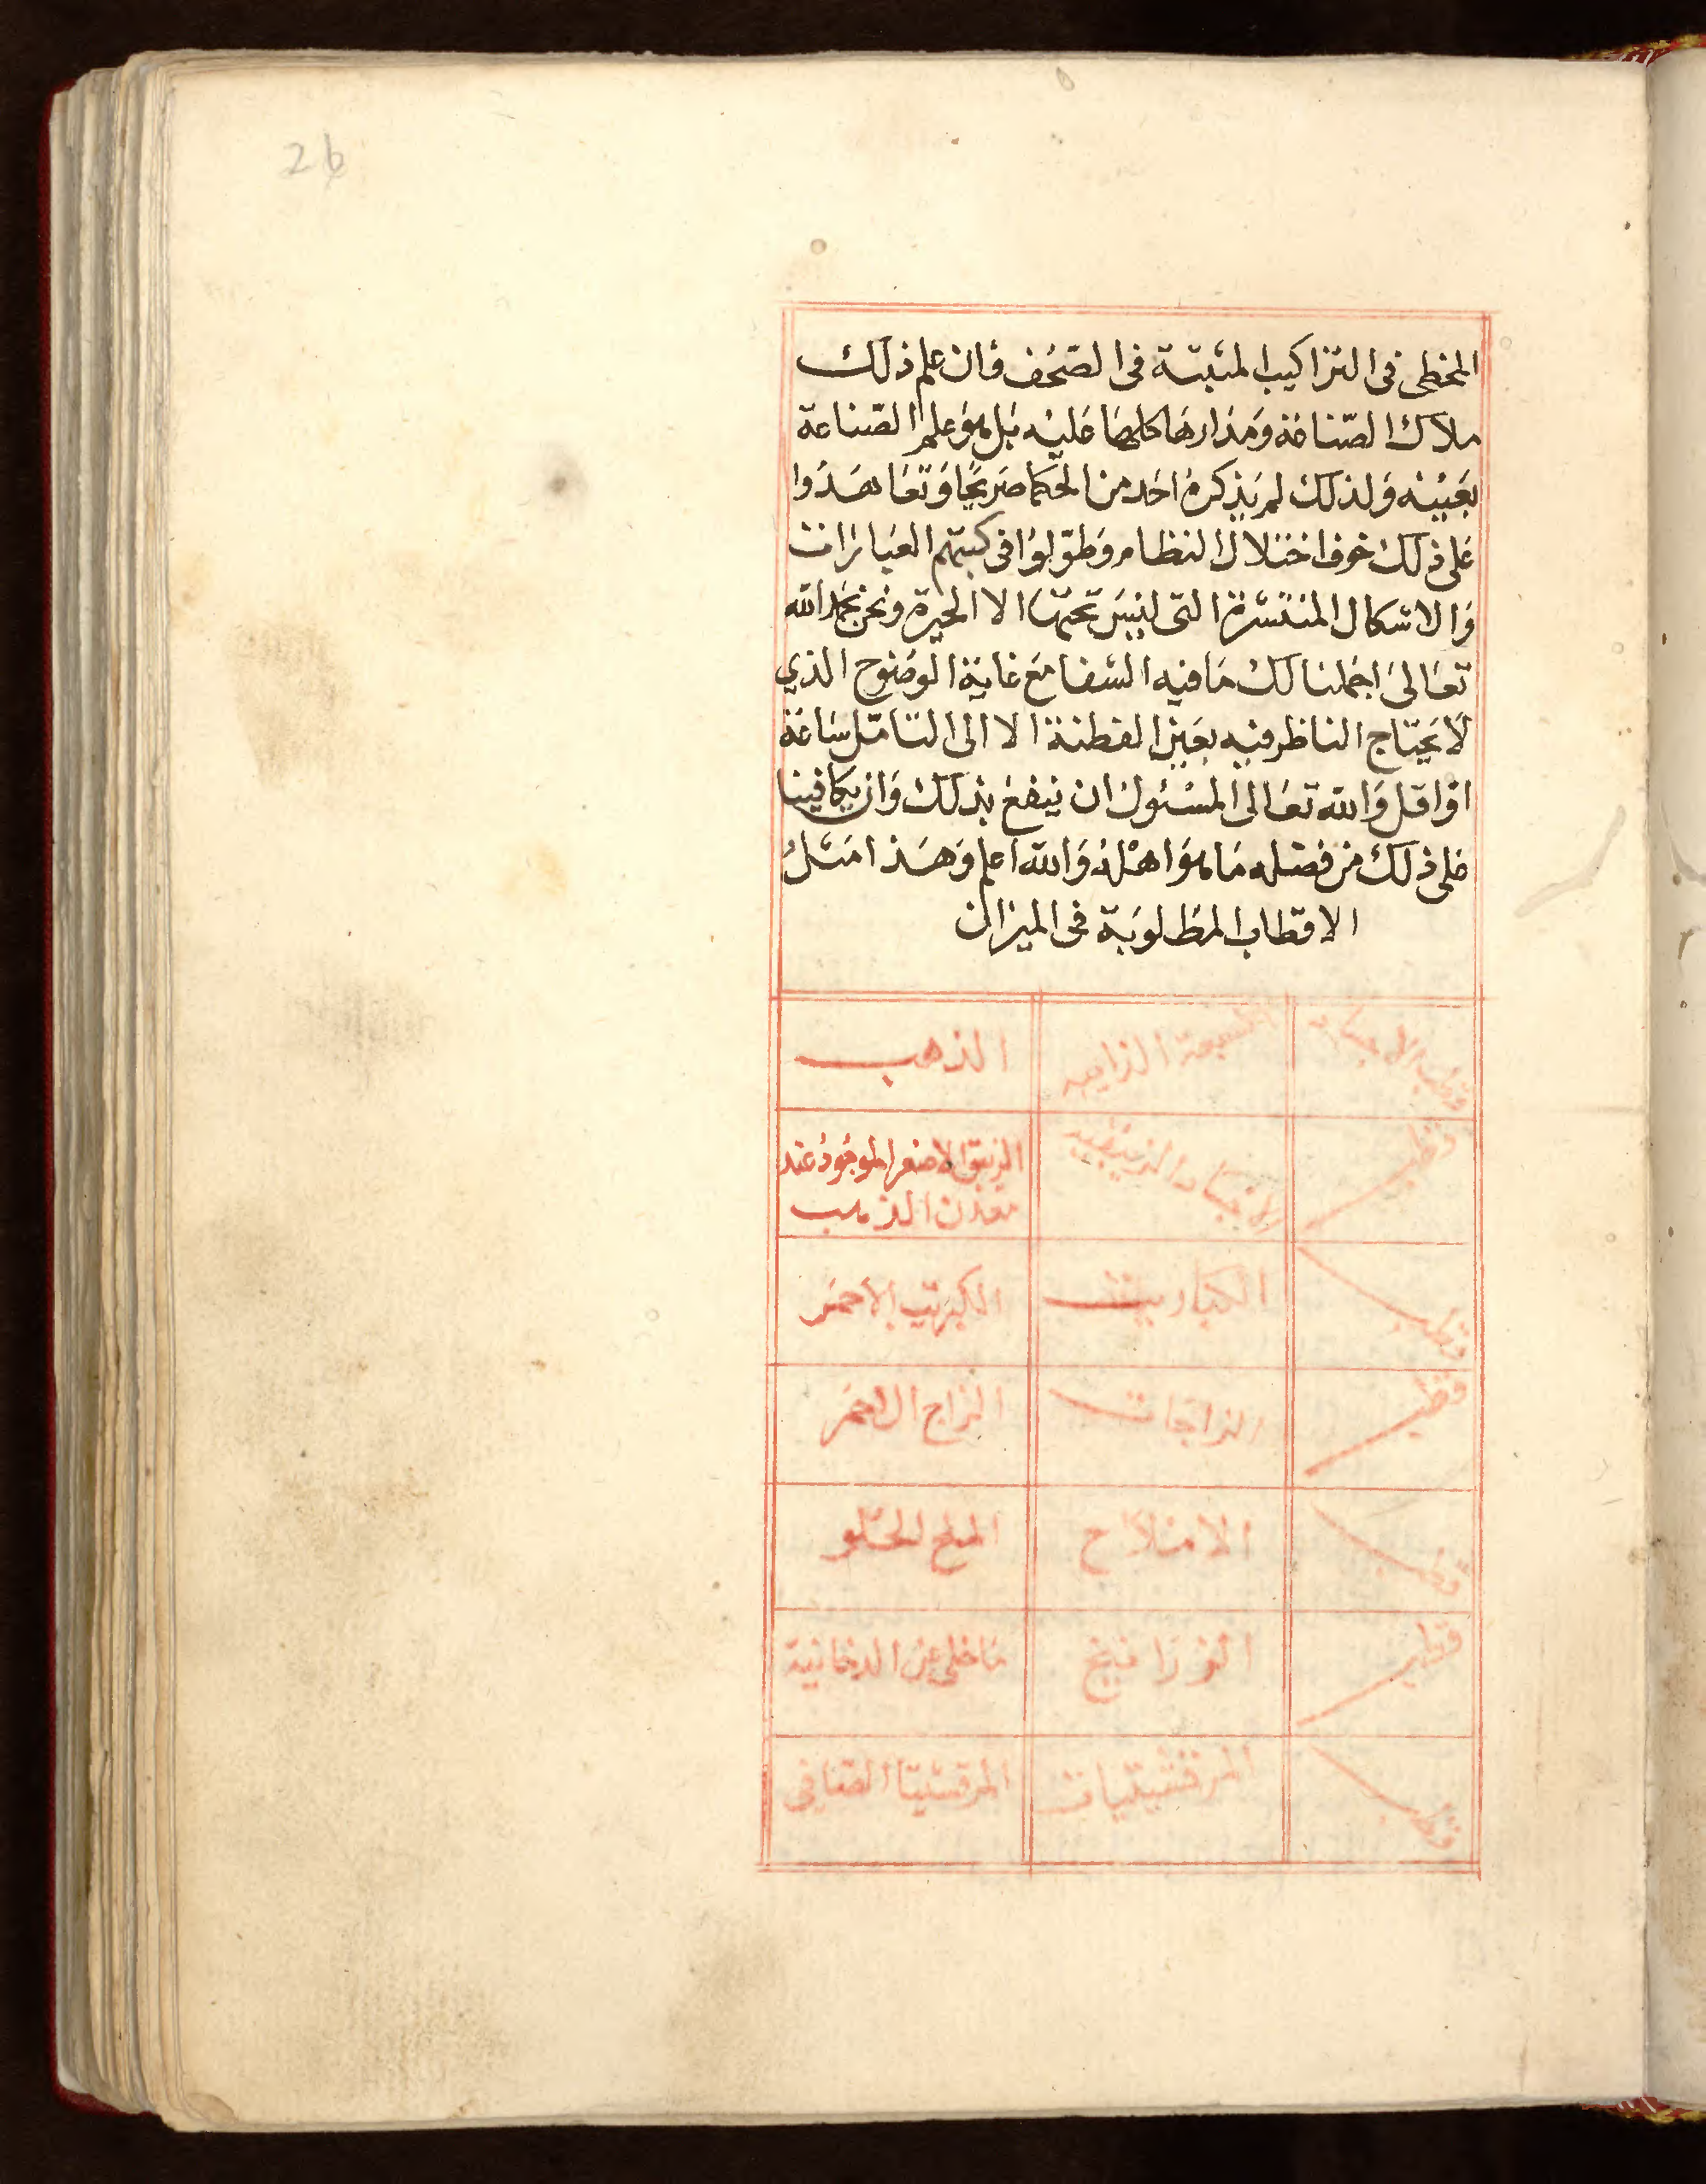 26
المخطى فى التراكيب المثبتة فى الصحف فان علم ذلك
ملاك الصناعة ومدارها كلها عليه بل هو علم الصناعة
بعينه ولذلك لم يذكره احد من الحكما صريحا وتعاهدوا
على ذلك خوف اختلال النظام وطولوا فى كتبهم العبارات
والاشكال المنتشرة التى ليس تحتها الا الحيرة ونحن بحمد الله
تعالى اجملنا لك ما فيه الشفا مع غاية الوضوح الذي
لا يحتاج الناظر فيه بعين الفطنة الا الى التامل ساعة
او اقل والله تعالى المسئول ان ينفع بذلك وان يكافينا
على ذلك من فضله ما هو اهله والله اعلم وهذا مثل
الاقطاب المطلوبة فى الميزان
قطب الاجساد السبعة الذايبه الذهب
قطب الاجساد الزيبقيه الزيبق الاصفر الموجود عند
معدن الذهب
قطب الكباريت الكبريت الاحمر
قطب الزاجات الزاج الاحمر
قطب الاملاح الملح الحلو
قطب الزرانيخ ما خلى عن الدخانية
قطب المرقشيتيات المرقشيتا الصافي